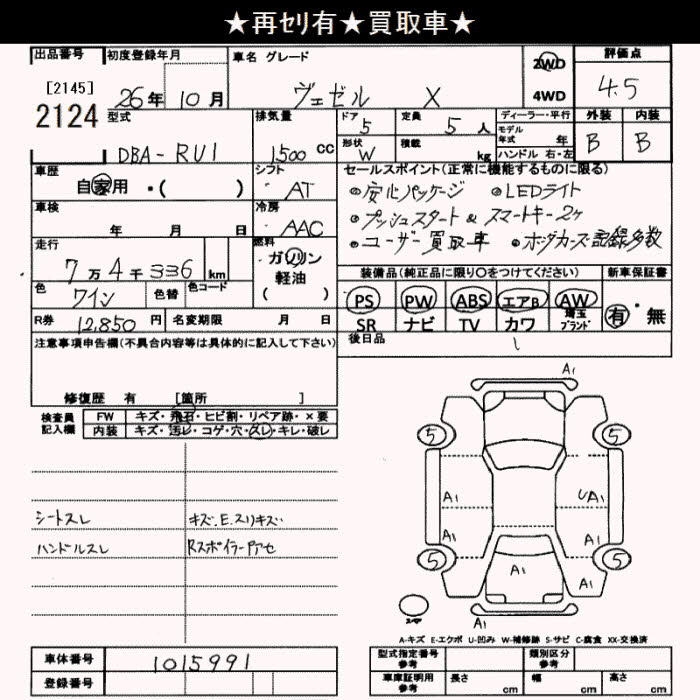 ★再ｾﾘ有★買取車★
出品番号 初度登録年月 車名 グレード 評価点
[2145]
2124
26年 10月 ヴェゼル X 2WD 4WD 4.5
型式 排気量 ドア 定員 ディーラー・平行 外装 内装
DBA-RU1 1500 cc 5 5人 モデル年式 年 B B
形状 W 積載 kg ハンドル 右・左
車歴 シフト セールスポイント(正常に機能するものに限る)
自家用 ・( ) AT ◎安心パッケージ ◎LEDライト
車検 冷房 ◎プッシュスタート & スマートキー2ヶ
年 月 日 AAC ◎ユーザー買取車 ◎ホンダカーズ記録多数
走行 燃料
7万4千336 km ガソリン 軽油 ( )
装備品(純正品に限り○をつけてください) 新車保証書
色 ワイン 色替 色コード
PS PW ABS エアB AW 有・無
SR ナビ TV カワ 埼玉ブランド
R券 12,850 円 名変期限 月 日
後日品
注意事項申告欄(不具合内容等は具体的に記入して下さい)
修復歴 有 [箇所 ]
検査員記入欄 FW キズ・飛石・ヒビ割・リペア跡・×要
内装 キズ・汚レ・コゲ・穴・スレ・キレ・破レ
A1
5 5
A1 UA1
A1 A1
5 5
A1 A1
A1
シートスレ キズ.E.スリキズ
ハンドルスレ Rスポイラーアセ
A-キズ E-エクボ U-凹み W-補修跡 S-サビ C-腐食 XX-交換済
車体番号 1015991 型式指定番号 参考 類別区分 参考
登録番号 車庫証明用 参考 長さ cm 幅 cm 高さ cm